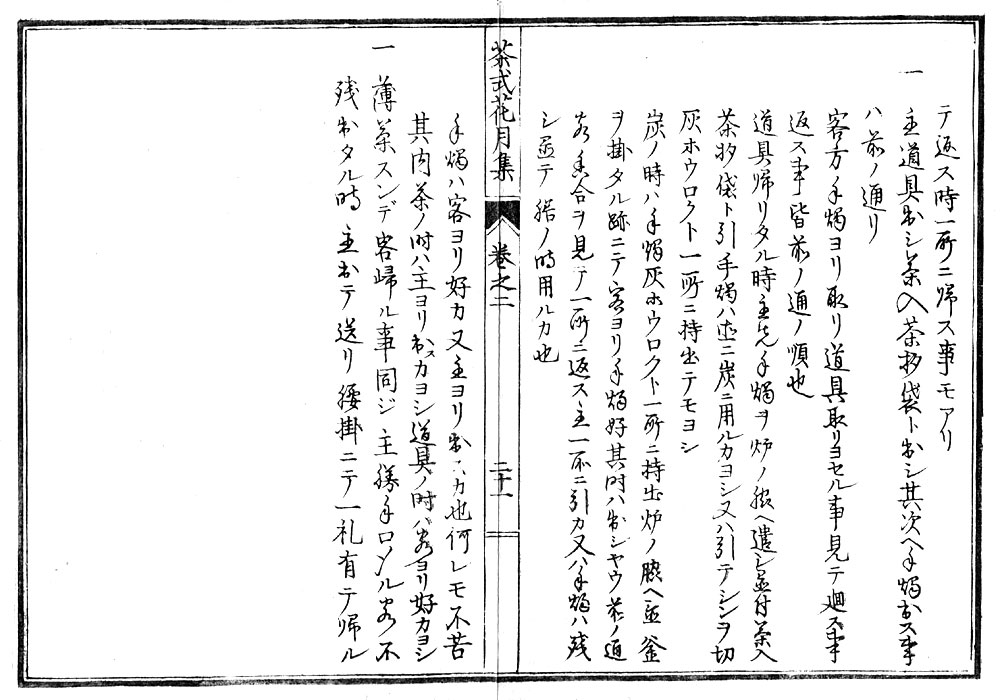 テ返ス時一所ニ帰ス事モアリ
一 主道具出シ茶入茶杓袋ト出シ其次ヘ手燭出ス事
ハ前ノ通リ
客方手燭ヨリ取リ道具取リヨセル事見テ廻ス事
返ス事皆前ノ通ノ順也
道具帰リタル時主先手燭ヲ炉ノ脇ヘ遣シ並付茶入
茶杓袋ト引手燭ハ迹ニ炭ニ用ルカヨシ又ハ引テシンヲ切
灰ホウロクト一所ニ持出テモヨシ
炭ノ時ハ手燭灰ホウロクト一所ニ持出炉ノ脇ヘ並釜
ヲ掛タル跡ニテ客ヨリ手燭好其時ハ出シヤウ前ノ通
客香合ヲ見テ一所ニ返ス主一所ニ引カ又ハ手燭ハ残
シ置テ ノ時用ルカ也
茶式花月集
巻之二
二十一
手燭ハ客ヨリ好カ又主ヨリ出スカ也何レモ不苦
其内茶ノ時ハ主ヨリ出スカヨシ道具ノ時ハ客ヨリ好カヨシ
一 薄茶スンデ客帰ル事同ジ主勝手口 ル客不
残出タル時主出テ送リ腰掛ニテ一礼有テ帰ル